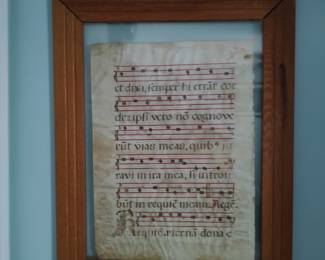 et dixi, semper hi errāt cor
de: ipsi vero nō cognove
rūt vias meas, quibꝰ iu
ravi in ira mea, si introi
būt in requiē meam. Regē.
Requiē eternā dona e